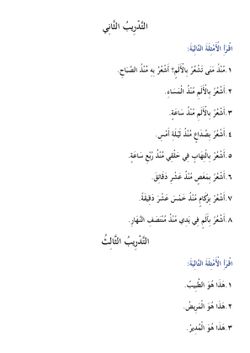 التَّدْرِيبُ الثَّانِي
اقْرَأِ الْأَمْثِلَةَ التَّالِيَةَ:
١.مُنْذُ مَتَى تَشْعُرُ بِالْأَلَمِ؟ أَشْعُرُ بِهِ مُنْذُ الصَّبَاحِ.
٢.أَشْعُرُ بِالْأَلَمِ مُنْذُ الْمَسَاءِ.
٣.أَشْعُرُ بِالْأَلَمِ مُنْذُ سَاعَةٍ.
٤.أَشْعُرُ بِصُدَاعٍ مُنْذُ لَيْلَةِ أَمْسِ.
٥.أَشْعُرُ بِالْتِهَابٍ فِي حَلْقِي مُنْذُ رُبْعِ سَاعَةٍ.
٦.أَشْعُرُ بِمَغَصٍ مُنْذُ عَشْرِ دَقَائِقَ.
٧.أَشْعُرُ بِزُكَامٍ مُنْذُ خَمْسَ عَشْرَ دَقِيقَةً.
٨.أَشْعُرُ بِأَلَمٍ فِي يَدِي مُنْذُ مُنْتَصَفِ النَّهَارِ.
التَّدْرِيبُ الثَّالِثُ
اقْرَأِ الْأَمْثِلَةَ التَّالِيَةَ:
١.هَذَا هُوَ الطَّبِيبُ.
٢.هَذَا هُوَ الْمَرِيضُ.
٣.هَذَا هُوَ الْمُدِيرُ.